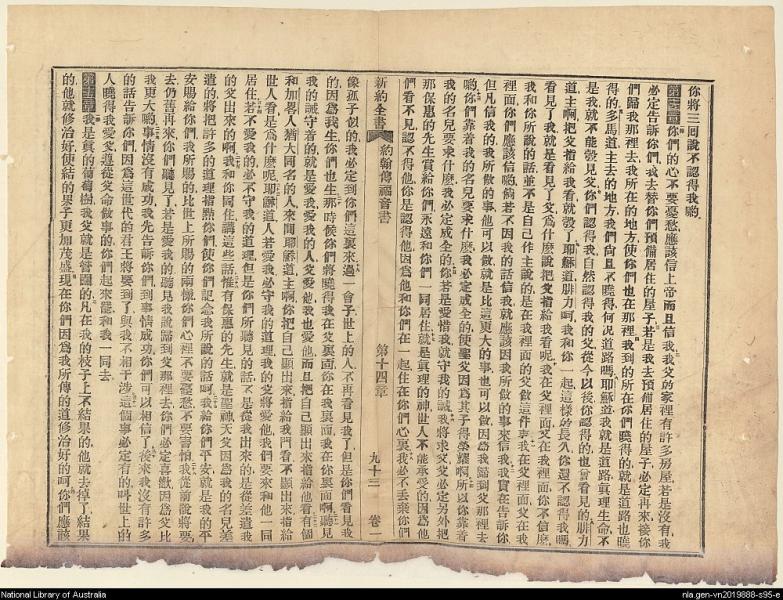 你將三回說不認得我喲
第十四章 你們的心不要憂愁應該信上帝而且信我我父的家裡有許多房屋若是沒有我
必定告訴你們我去替你們預備居住的屋子若是我去預備居住的屋子必定再來接你
們歸我那裡去我所在的地方使你們也在那裡我到的所在你們曉得的就是道路也曉
得的多馬道主去的地方我們尙且不曉得何況道路嗎耶穌道我就是道路眞理生命不
是我就不能彀見父你們認得我自然認得我的父從今以後你認得的也曾看見的腓力
道主啊把父指給我看就彀了耶穌道腓力呵我和你一起這樣的長久你還不認得我嗎
看見了我就是看見了父爲什麼說把父指給我看呢我在父裡面父在我裡面你不信麼
我和你所說的話並不是自己作主說的是在我裡面的父做這件事我在父裡面父在我
裡面你們應該信喲倘若不因我的話信我就應該因我所做的事來信我我實在告訴你
但凡信我的我所做的事他可以做就是比這更大的事也可以做因爲我歸到父那裡去
喲你們靠着我的名兒要求什麼我必定成全的使聖父因爲其子得榮耀啊所以你靠着
我的名兒要求什麼我必定成全的你若是愛惜我就守我的誡我將求父父必定另外把
那保惠的先生賞給你們永遠和你們一同居住就是眞理的神世人不能承受的因爲他
們看不見認不得他你是認得他因爲他和你們在一起住在你們心裏我必不丟棄你們
新約全書 約翰傳福音書 第十四章 九十三 卷一
像孤子似的我必定到你們這裏來過一會子世上的人不再看見我了但是你們看見我
的因爲我生你們也生那時候你們將曉得我在父裏面你在我裏面我在你裏面啊聽見
我的誡守着的就是愛我愛我的人父愛他我也愛他而且把自己顯出來指給他看有個
和加畧人猶大同名的人來問耶穌道主啊你把自己顯出來指給我們看不顯出來指給
世人看是爲什麼呢耶穌道人若愛我必守我的道理我的父將愛他我們要來和他一同
居住若不愛我的必不守我的道理但是你們所聽見的話不是從我出來的是從差遣我
的父出來的啊我和你同住講這些話惟有保惠的先生就是聖神天父因爲我的名兒差
遣的將把許多的道理指點你們使你們記念我所說的話呵我給你們平安就是我的平
安賜給你們我所賜的比世上所賜的兩樣你們心裡不要憂愁不要害怕我從前說將要
去仍舊再來你們聽見了若是愛我的聽見我說歸到父那裡去你們必定喜歡因爲父比
我更大喲事情沒有成功我先告訴你們到事情成功你們可以相信了後來我沒有許多
的話告訴你們因爲這世代的君王將要到了與我不相干涉這個事必定有的叫世上的
人曉得我愛父遵從父命做事的你們起來罷和我一同去
第十五章 我是眞的葡萄樹我父就是管園的凡在我的枝子上不結果的他就去掉了結果
的他就修治好使結的果子更加茂盛現在你們因爲我所傳的道修治好的呵你們應該
National Library of Australia
nla.gen-vn2019888-s95-e